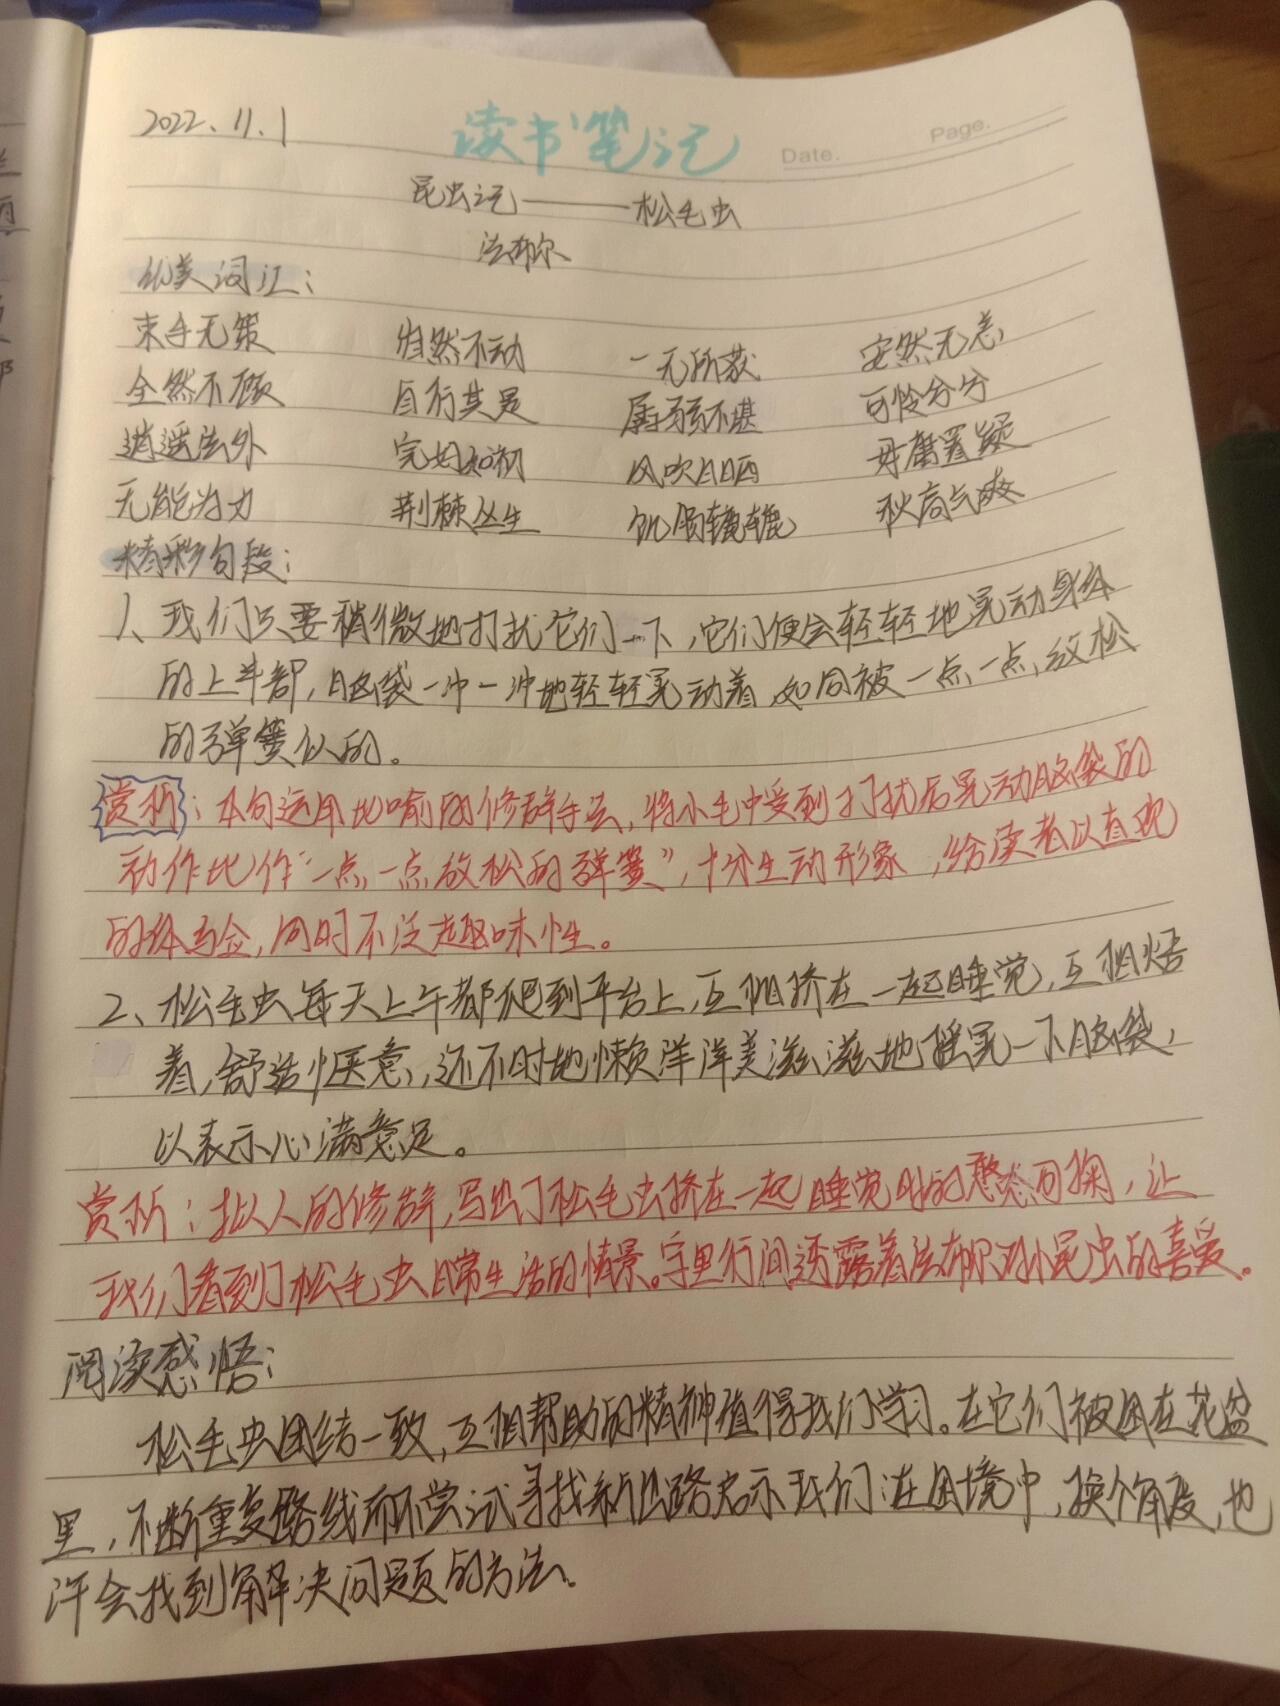 2022.11.1 读书笔记 Date. Page.
昆虫记——松毛虫
法布尔
优美词汇：
束手无策 自然不动 一无所获 安然无恙
全然不顾 自行其是 孱弱不堪 可怜兮兮
逍遥法外 完好如初 风吹日晒 毋庸置疑
无能为力 荆棘丛生 饥肠辘辘 秋高气爽
精彩句段：
1、我们只要稍微地打扰它们一下，它们便会轻轻地晃动身体
的上半部，脑袋一冲一冲地轻轻晃动着，如同被一点一点放松
的弹簧似的。
赏析：本句运用比喻的修辞手法，将小毛虫受到打扰后晃动脑袋的
动作比作“一点一点放松的弹簧”，十分生动形象，给读者以直观
的体验，同时不泛趣味性。
2、松毛虫每天上午都爬到平台上，互相挤在一起睡觉，互相焐
着，舒适惬意，还不时地懒洋洋美滋滋地摇晃一下脑袋，
以表示心满意足。
赏析：拟人的修辞，写出了松毛虫挤在一起睡觉时的憨态可掬，让
我们看到了松毛虫日常生活的情景。字里行间透露着法布尔对小昆虫的喜爱。
阅读感悟：
松毛虫团结一致，互相帮助的精神值得我们学习。在它们被困在花盆
里，不断重复路线而不尝试寻找新出路启示我们：在困境中，换个角度，也
许会找到解决问题的方法。